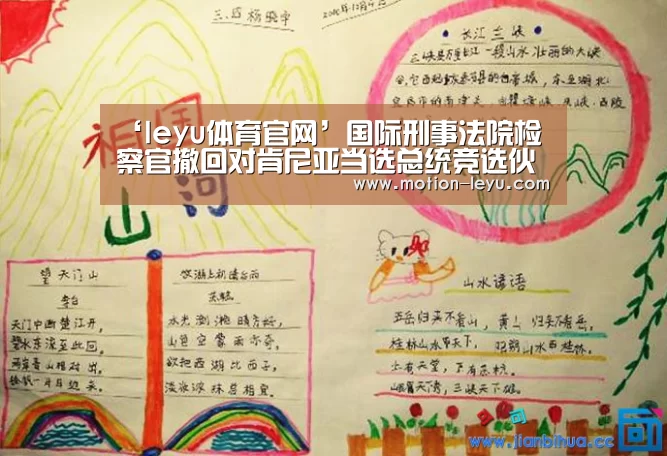 长江三峡
三峡是万里长江一段山水壮丽的大峡
谷,它西起重庆奉节县的白帝城,东至湖北
‘leyu体育官网’国际刑事法院检
察官撤回对肯尼亚当选总统竞选伙
www.motion-leyu.com
祖国
山河
望天门山
李白
天门中断楚江开,
碧水东流至此回,
两岸青山相对出,
孤帆一片日边来。
饮湖上初晴后雨
苏轼
水光潋滟晴方好,
山色空蒙雨亦奇,
欲把西湖比西子,
淡妆浓抹总相宜。
山水谚语
五岳归来不看山,黄山归来不看岳。
桂林山水甲天下,阳朔山水甲桂林。
上有天堂,下有苏杭。
www.jianbihua.cc